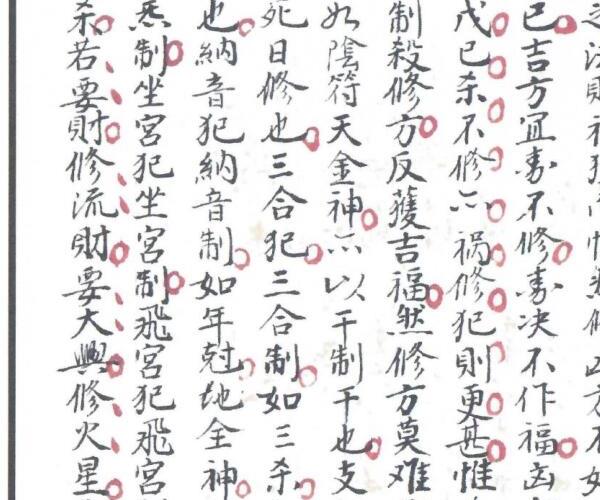 已吉方宜寿不修寿决不作福凶
戊已杀不修亦祸修犯則更甚惟
制殺修方反獲吉福然修方莫难
如陰符天金神亦以干制干也支
死日修也三合犯三合制如三杀
也納音犯納音制如年尅地全神
制坐宮犯坐宮制飛宮犯飛宮
杀若要財修流財要大興修火星